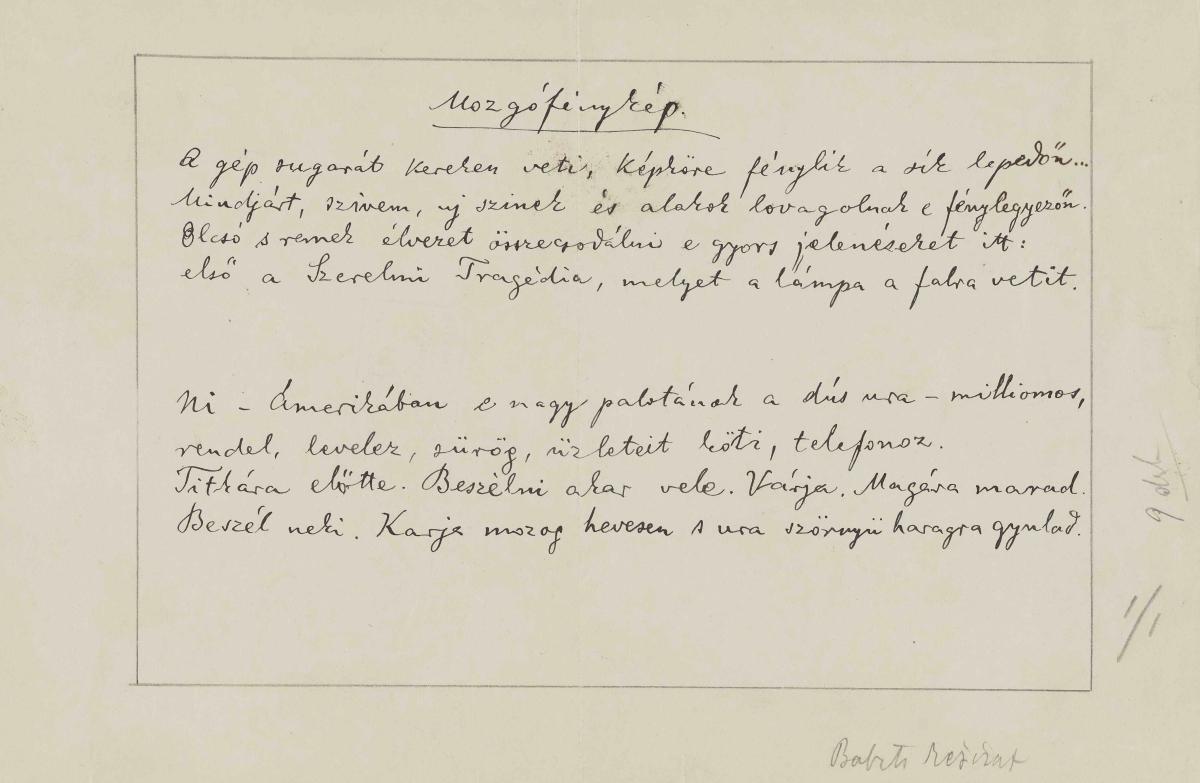 Mozgófénykép.
A gép sugarát kereken veti, képköre fénylik a sík lepedőn...
Mindjárt, szivem, uj szinek és alakok lovagolnak e fénylegyezőn.
Olcsó s remek élvezet összecsodálni e gyors jelenéseket itt:
első a Szerelmi Tragédia, melyet a lámpa a falra vetit.
Ni - Ámerikában e nagy palotának a dús ura - milliomos,
rendel, levelez, sürög, üzleteit köti, telefonoz.
Titkára előtte. Beszélni akar vele. Várja. Magára marad.
Beszél neki. Karja mozog hevesen s ura szörnyü haragra gyulad.
9 drb
1/1